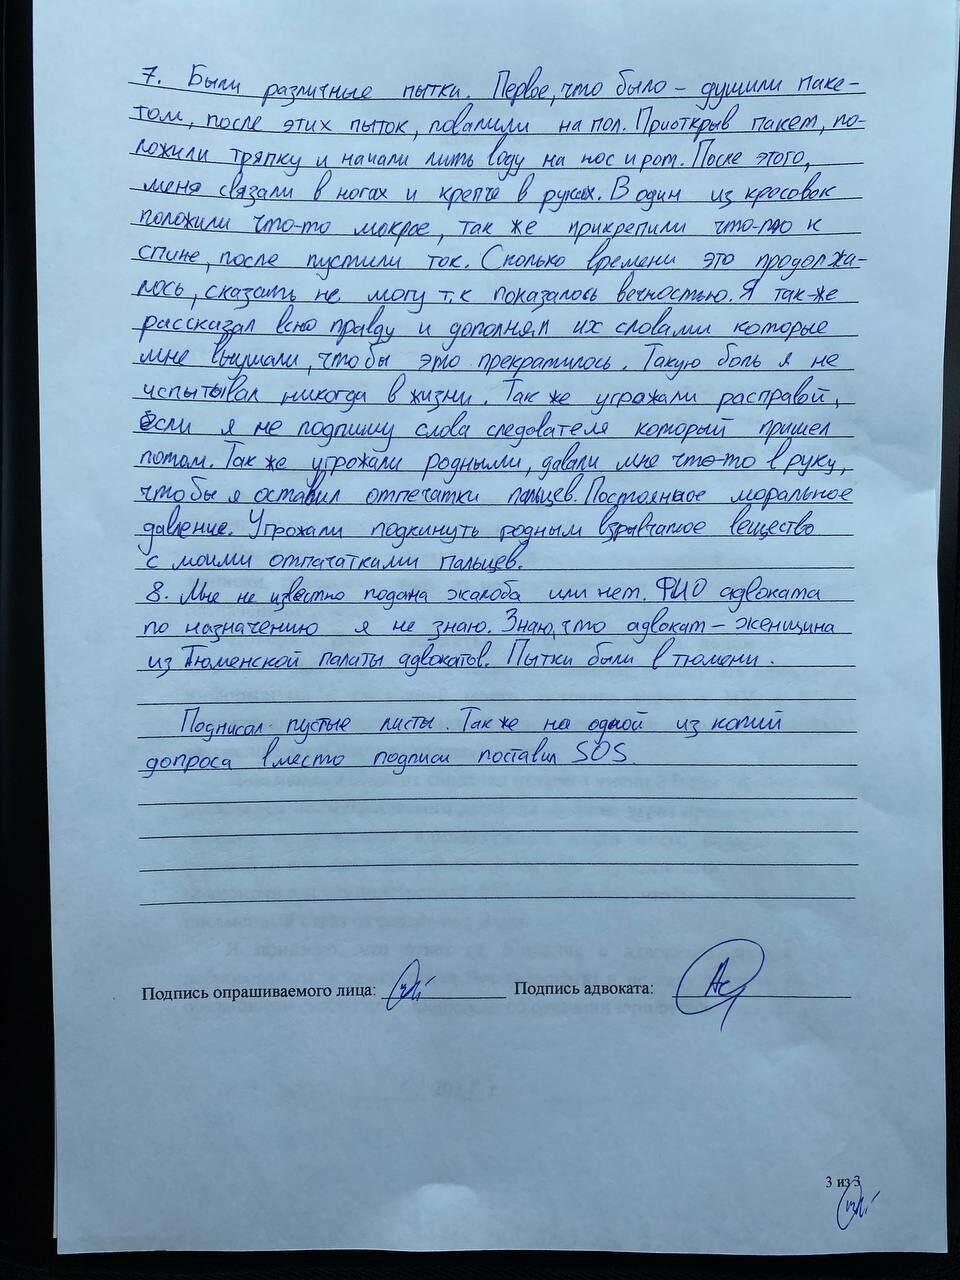 7. Были различные пытки. Первое, что было – душили паке-
том, после этих пыток, повалили на пол. Приоткрыв пакет, по-
ложили тряпку и начали лить воду на нос и рот. После этого,
меня связали в ногах и крепче в руках. В один из кросовок
положили что-то мокрое, так же прикрепили что-то к
спине, после пустили ток. Сколько времени это продолжа-
лось, сказать не могу т.к показалось вечностью. Я так-же
рассказал всю правду и дополнял их словами которые
мне внушали, что бы это прекратилось. Такую боль я не
испытывал никогда в жизни. Так же угражали расправой,
если я не подпишу слова следователя который пришел
потом. Так же угрожали родными, давали мне что-то в руку,
что бы я оставил отпечатки пальцев. Постоянное моральное
давление. Угрожали подкинуть родным взрывчатое вещество
с моими отпечатками пальцев.
8. Мне не известно подана жалоба или нет. ФИО адвоката
по назначению я не знаю. Знаю, что адвокат – женщина
из Тюменской палаты адвокатов. Пытки были в тюмени.
Подписал пустые листы. Так же на одной из копий
допроса вместо подписи поставил SOS.
Подпись опрашиваемого лица: Подпись адвоката:
3 из 3